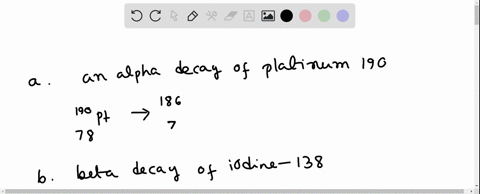 a. an alpha decay of platinum 190
190 186
Pt →
78 7
b. beta decay of iodine-138